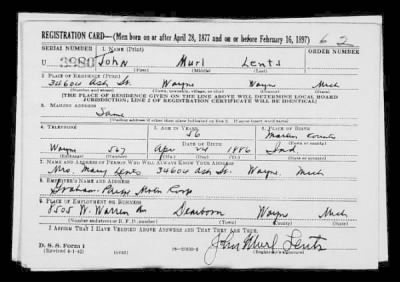 REGISTRATION CARD—(Men born on or after April 28, 1877 and on or before February 16, 1897) 62
SERIAL NUMBER 1. NAME (Print) ORDER NUMBER
U 3980 John Murl Lents
(First) (Middle) (Last)
2. PLACE OF RESIDENCE (Print)
34604 Ash St. Wayne Wayne Mich
(Number and street) (Town, township, village, or city) (County) (State)
[THE PLACE OF RESIDENCE GIVEN ON THE LINE ABOVE WILL DETERMINE LOCAL BOARD
JURISDICTION; LINE 2 OF REGISTRATION CERTIFICATE WILL BE IDENTICAL]
3. MAILING ADDRESS
Same
[Mailing address if other than place indicated on line 2. If same insert word same]
4. TELEPHONE 5. AGE IN YEARS 6. PLACE OF BIRTH
56 Martin County
DATE OF BIRTH (Town or county)
Wayne 567 Apr 24 1886 Ind
(Exchange) (Number) (Mo.) (Day) (Yr.) (State or country)
7. NAME AND ADDRESS OF PERSON WHO WILL ALWAYS KNOW YOUR ADDRESS
Mrs. Mary Lents 34604 Ash St. Wayne, Mich
8. EMPLOYER'S NAME AND ADDRESS
Graham-Paige Motor Corp
9. PLACE OF EMPLOYMENT OR BUSINESS
8505 W. Warren Dearborn Wayne Mich
(Number and street or R. F. D. number) (Town) (County) (State)
I AFFIRM THAT I HAVE VERIFIED ABOVE ANSWERS AND THAT THEY ARE TRUE.
D. S. S. Form 1
(Revised 4-1-42) (over) John Murl Lents
(Registrant's signature)